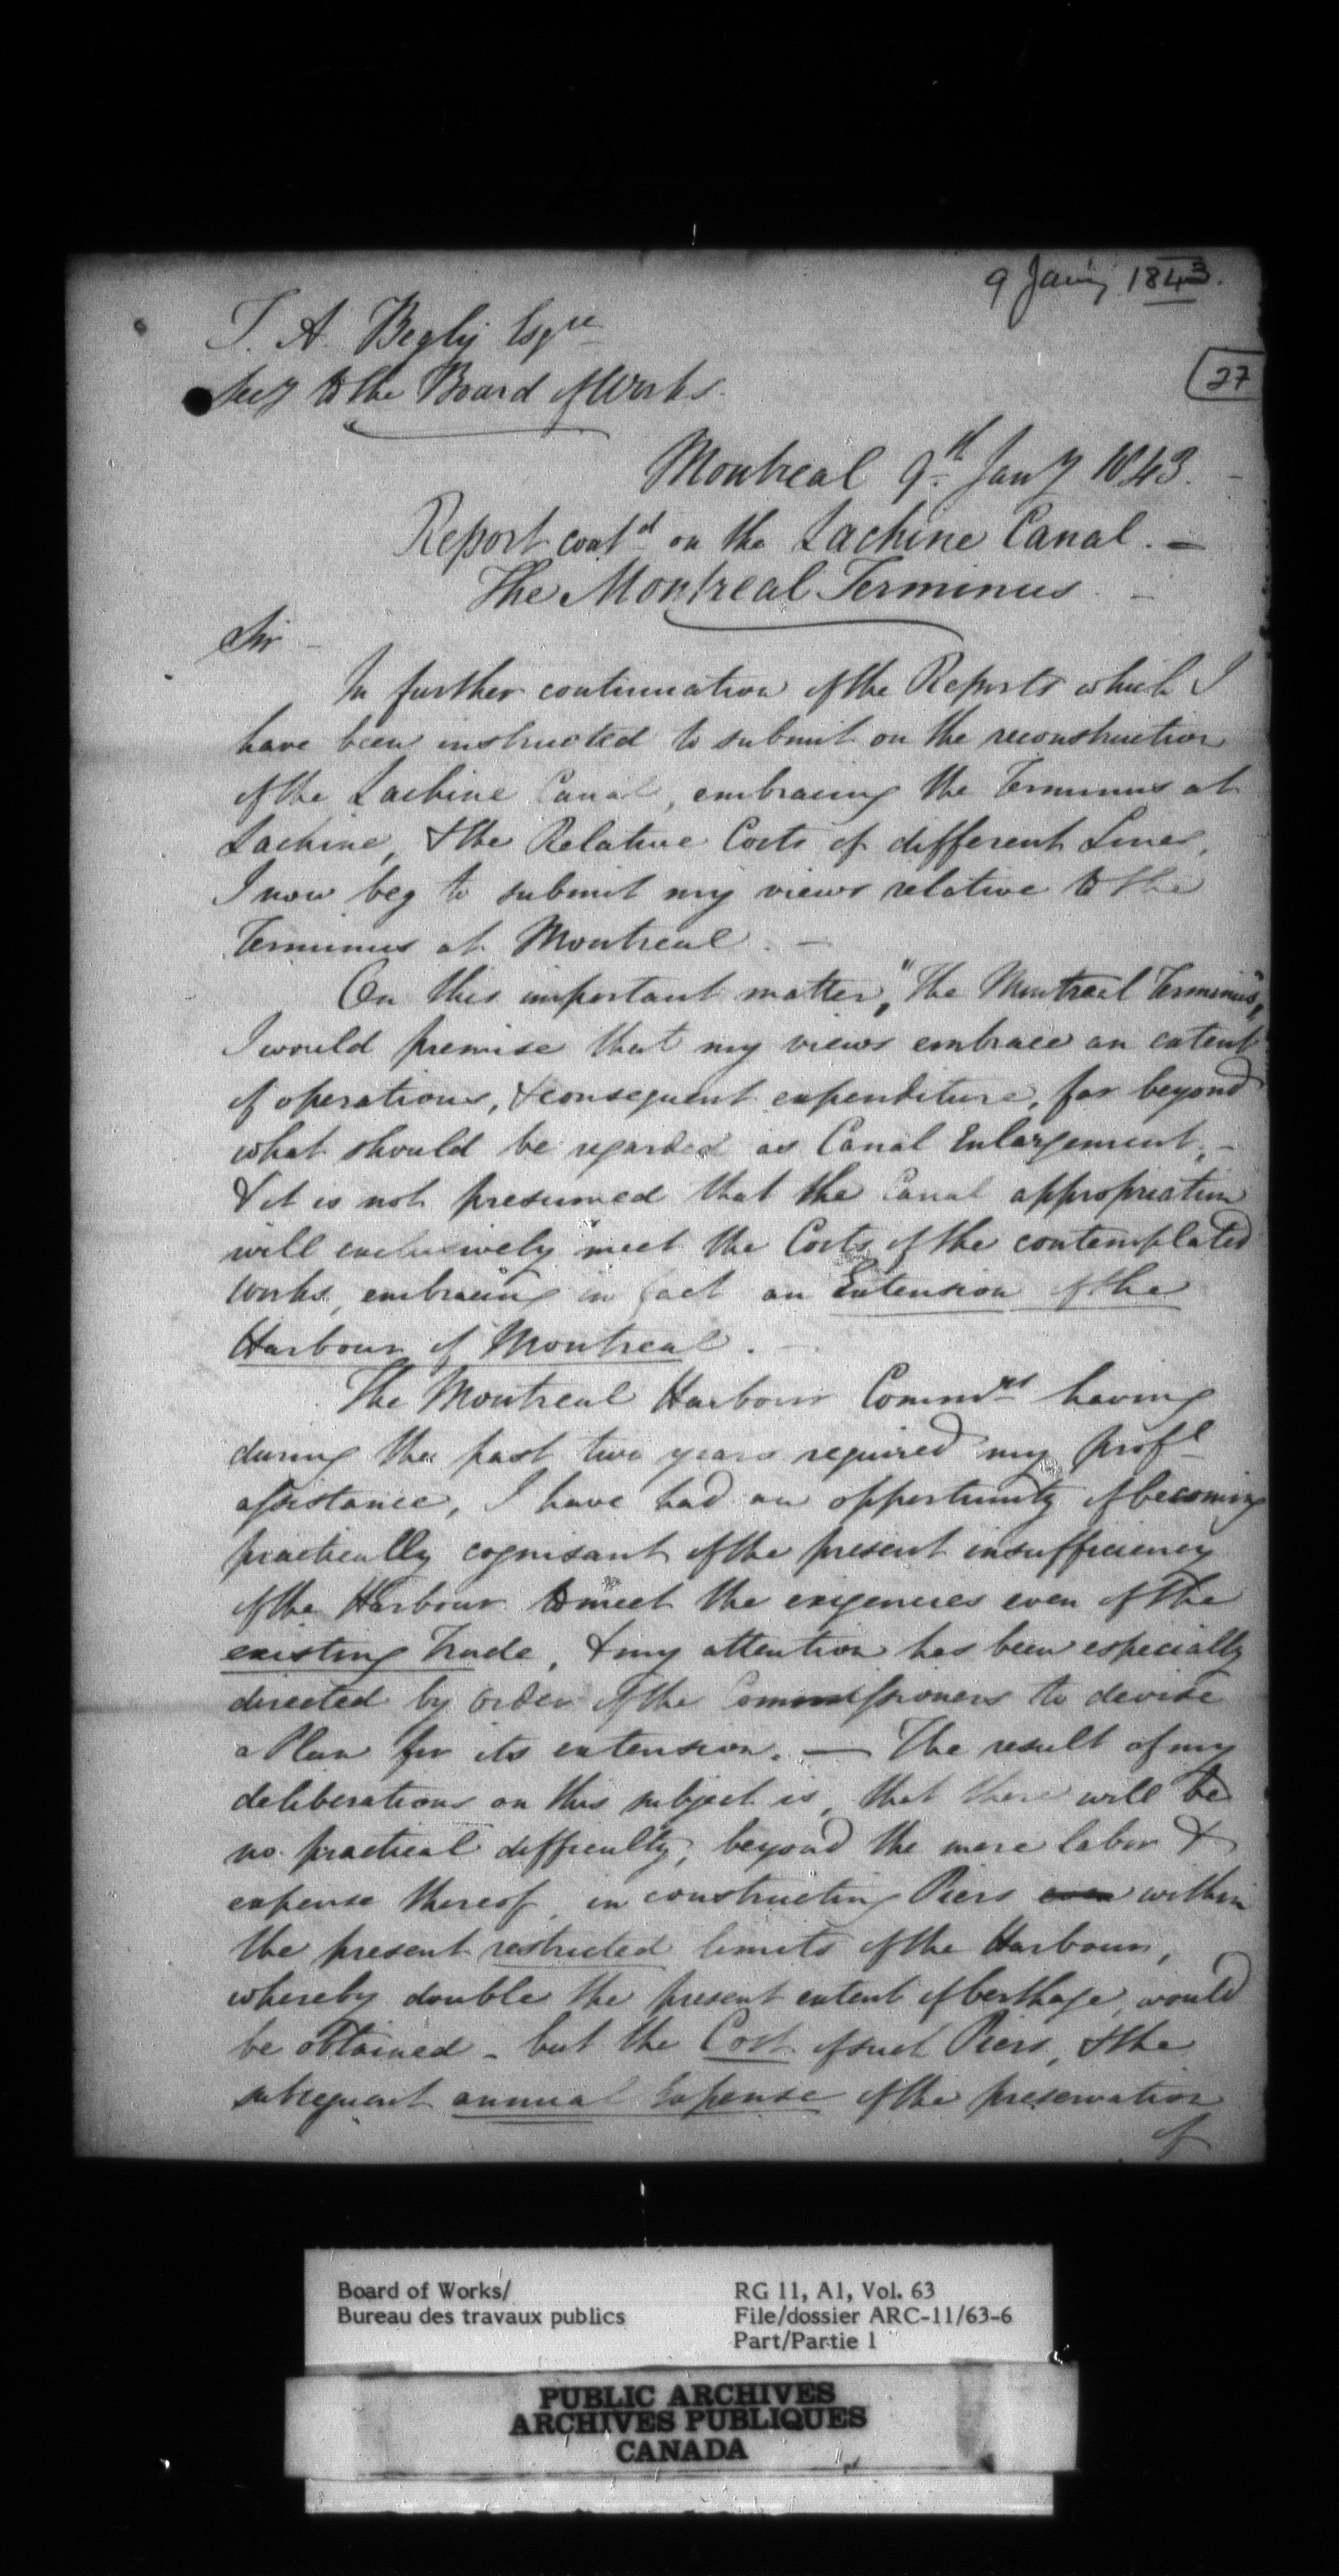 9 Jany 1843.
T. A. Begly Esqre
Secy to the Board of Works.
27
Montreal 9th Jany 1843. -
Report contd on the Lachine Canal. -
The Montreal Terminus -
Sir -
In further continuation of the Reports which I
have been instructed to submit on the reconstruction
of the Lachine Canal, embracing the Terminus at
Lachine, & the Relative Costs of different Lines,
I now beg to submit my views relative to the
Terminus at Montreal. -
On this important matter, "The Montreal Terminus",
I would premise that my views embrace an extent
of operations, & consequent expenditure, far beyond
what should be regarded as Canal Enlargement, -
& it is not presumed that the Canal appropriation
will exclusively meet the Costs of the contemplated
Works, embracing in fact an Extension of the
Harbour of Montreal. -
The Montreal Harbour Commrs having
during the past two years required my profl
assistance, I have had an opportunity of becoming
practically cognisant of the present insufficiency
of the Harbour to meet the exigencies even of the
existing Trade, & my attention has been especially
directed by order of the Commissioners to devise
a Plan for its extension. — The result of my
deliberations on this subject is, that there will be
no practical difficulty, beyond the mere labor &
expense thereof, in constructing Piers even within
the present restricted limits of the Harbour,
whereby double the present extent of berthage, would
be obtained - but the Cost of such Piers, & the
subsequent annual Expense of the preservation
of
Board of Works/
Bureau des travaux publics
RG 11, A1, Vol. 63
File/dossier ARC-11/63-6
Part/Partie 1
PUBLIC ARCHIVES
ARCHIVES PUBLIQUES
CANADA